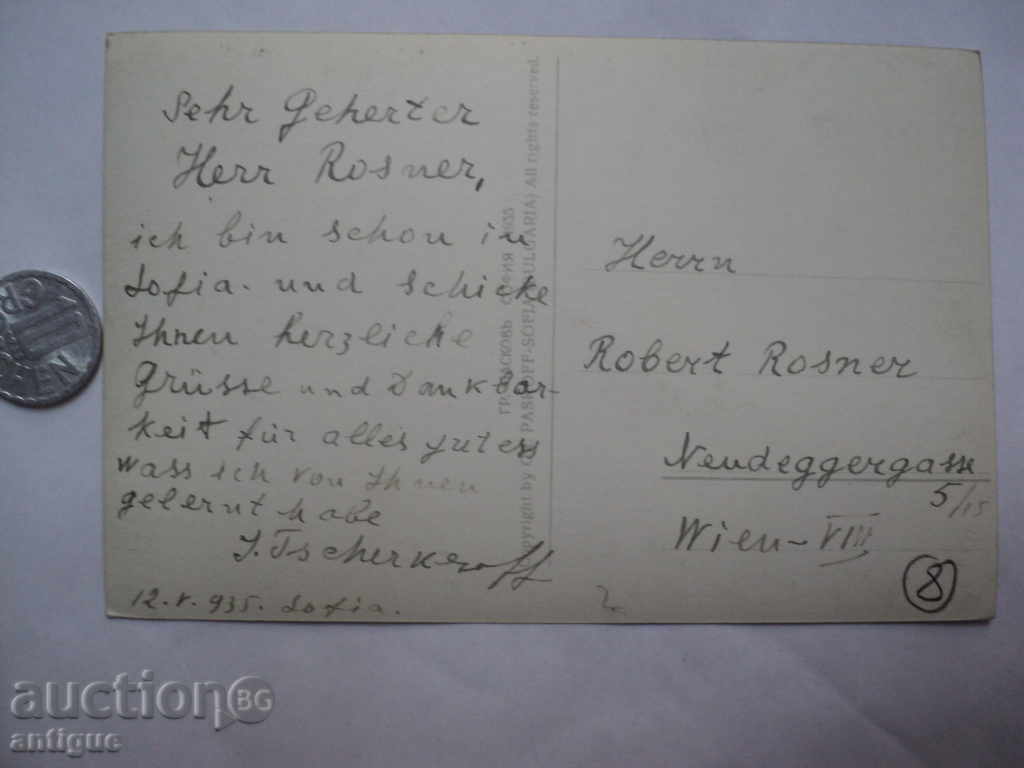 Sehr Geherter
Herr Rosner,
ich bin schon in
Sofia. und schicke
Ihnen herzliche
Grüsse und Dankbar-
keit für alles gutess
wass ich von Ihnen
gelernt habe
J. Tscherkeroff
12.V.935. Sofia.
ГР. ПАСКОВЪ
Copyright by PASKOFF-SOFIA (BULGARIA) All rights reserved.
Herrn
Robert Rosner
Neudeggergasse
5/15
Wien-VIII
8
auctionBG
antique